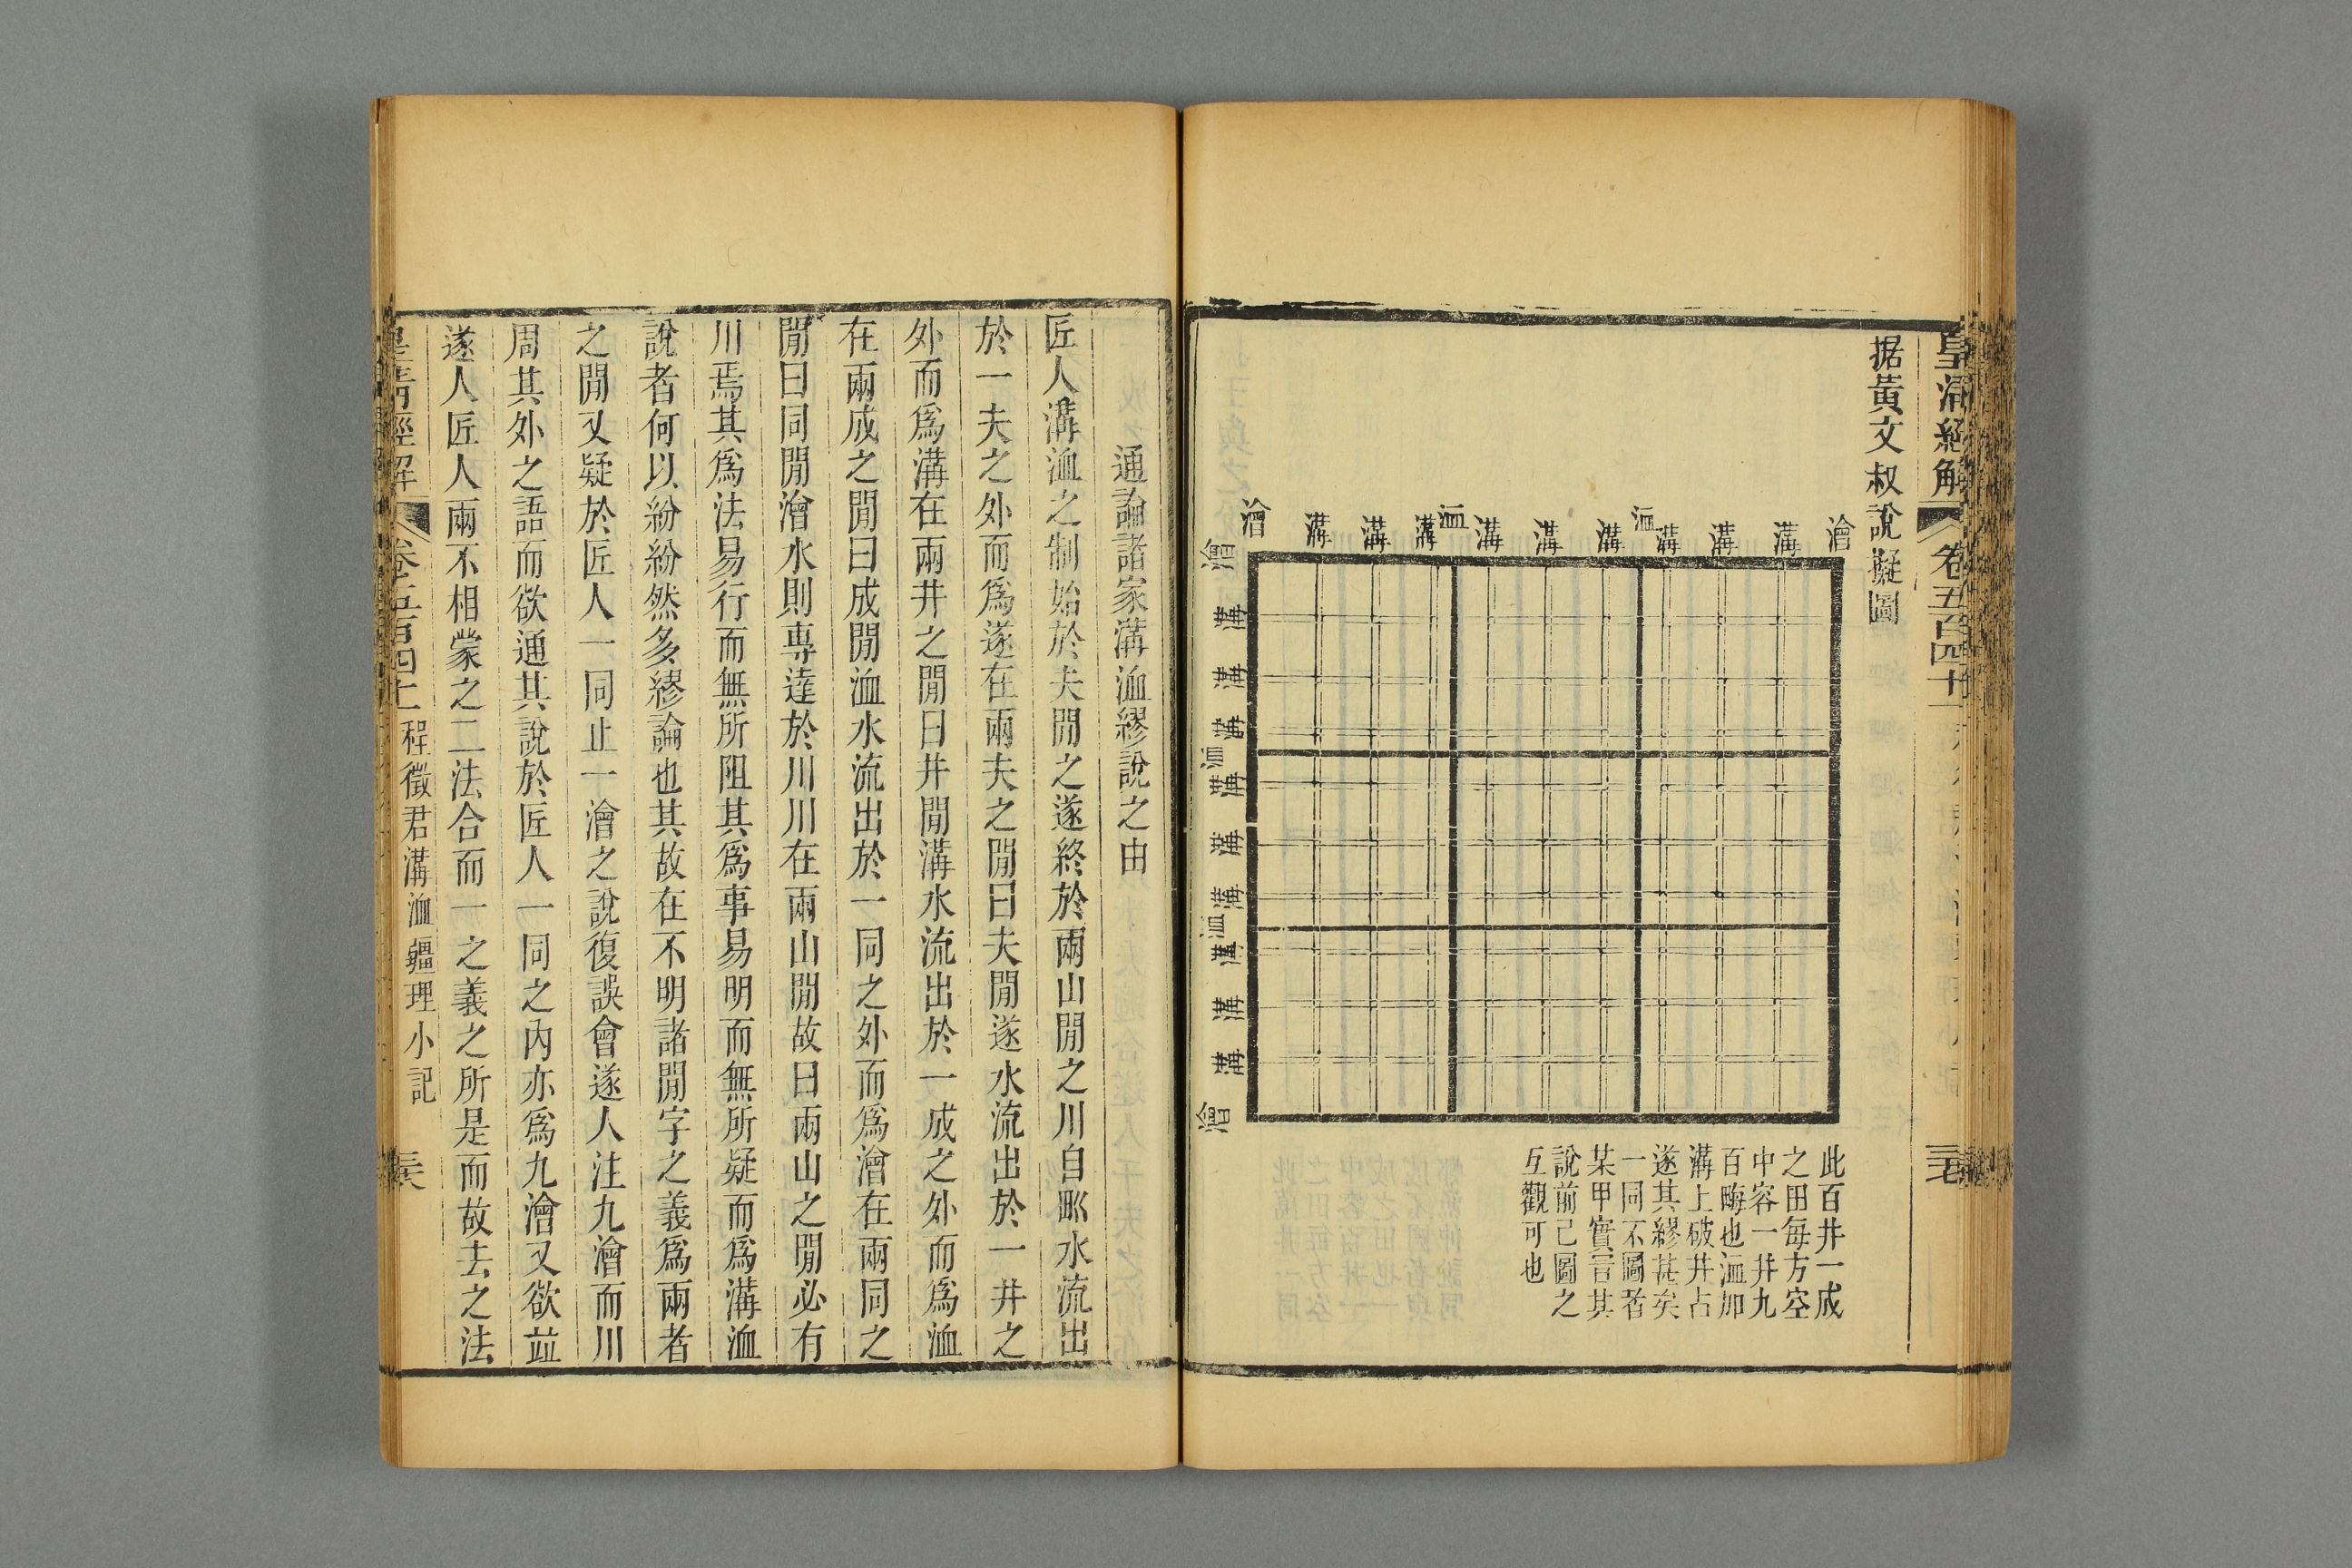 皇清經解
卷五百四十一
据黃文叔說擬圖
澮 溝 溝 洫 溝 溝 溝 洫 溝 溝 溝 溝 澮
澮
溝
溝
溝
洫
溝
溝
溝
洫
溝
溝
溝
澮
此百井一成
之田每方空
中容一井九
百畮也洫加
溝上破井占
遂其繆甚矣
一同不圖者
某甲實言其
說前已圖之
互觀可也
通論諸家溝洫繆說之由
匠人溝洫之制始於夫閒之遂終於兩山閒之川自甽水流出
於一夫之外而爲遂在兩夫之閒曰夫閒遂水流出於一井之
外而爲溝在兩井之閒曰井閒溝水流出於一成之外而爲洫
在兩成之閒曰成閒洫水流出於一同之外而爲澮在兩同之
閒曰同閒澮水則專達於川川在兩山閒故曰兩山之閒必有
川焉其爲法易行而無所阻其爲事易明而無所疑而爲溝洫
說者何以紛紛然多繆論也其故在不明諸閒字之義爲兩者
之閒又疑於匠人一同止一澮之說復誤會遂人注九澮而川
周其外之語而欲通其說於匠人一同之內亦爲九澮又欲竝
遂人匠人兩不相蒙之二法合而一之義之所是而故去之法
皇清經解
卷五百四十一
程徵君溝洫疆理小記